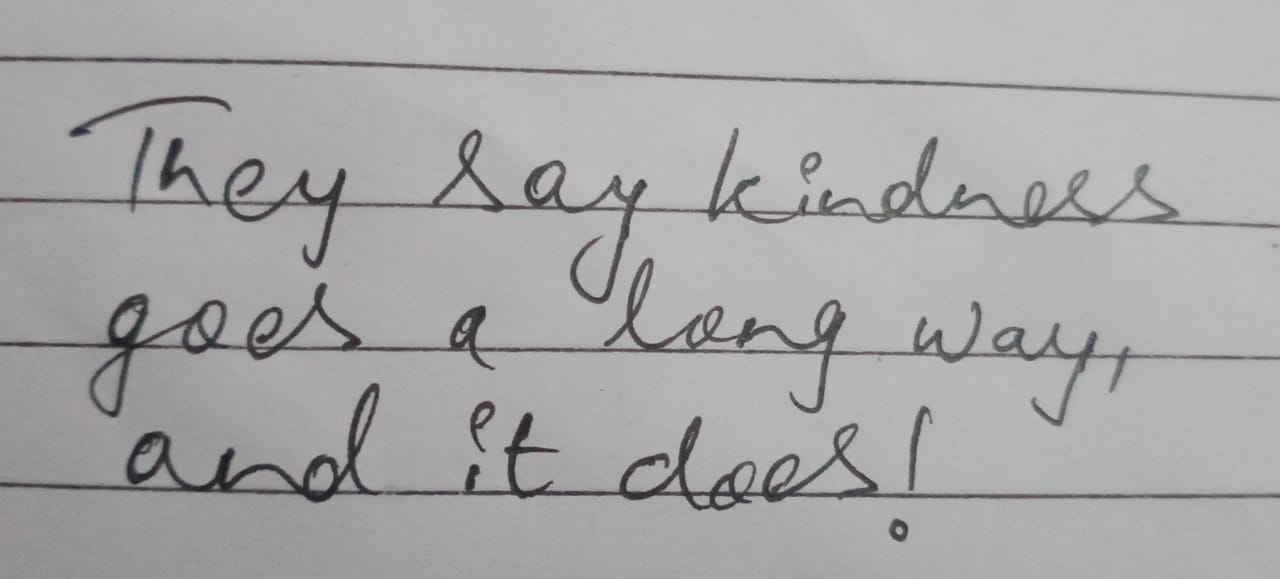 They say kindness
goes a long way,
and it does!